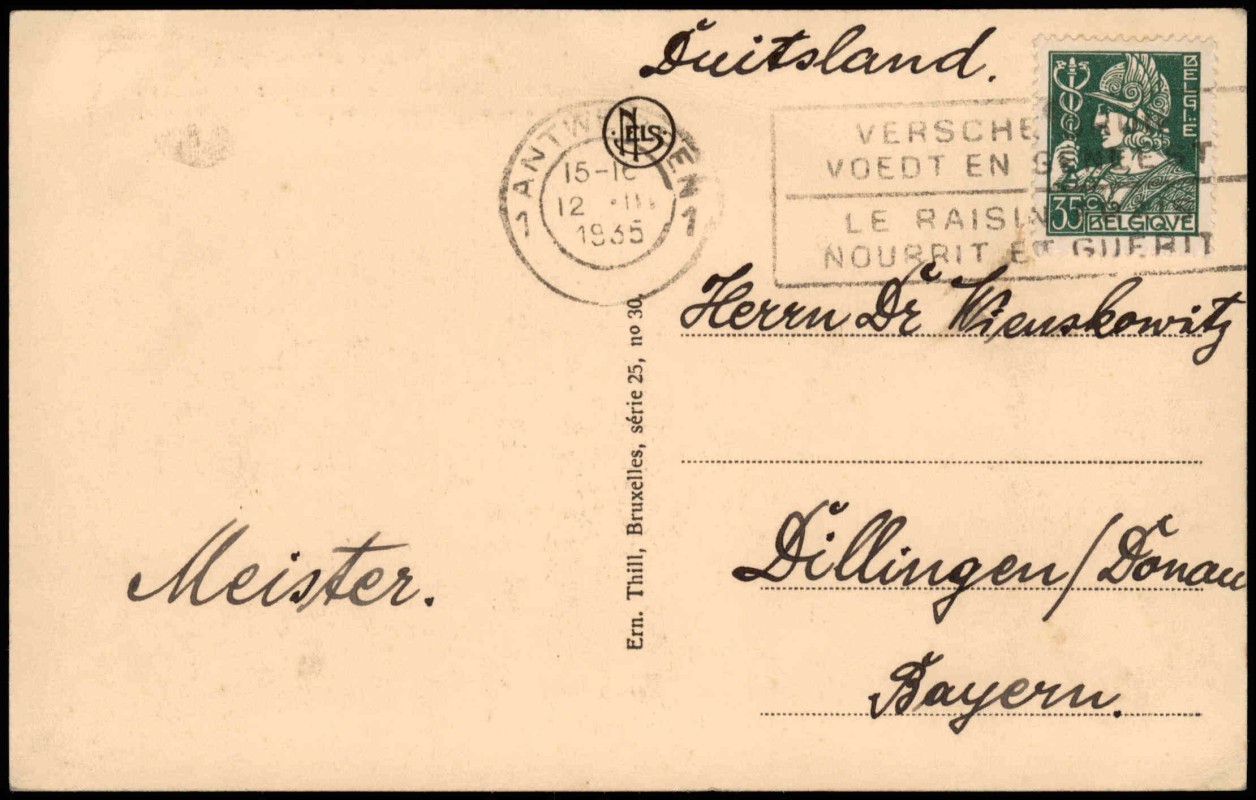 Duitsland.
NELS
ANTWERPEN
1 1
15-1
12 .III.
1935
VERSCHE DRUIF
VOEDT EN GENEEST
LE RAISIN
NOURRIT ET GUERIT
BELGIE
35c
BELGIQVE
Herrn Dr
Dillingen/Donau
Bayern.
Meister.
Ern. Thill, Bruxelles, série 25, no 30.